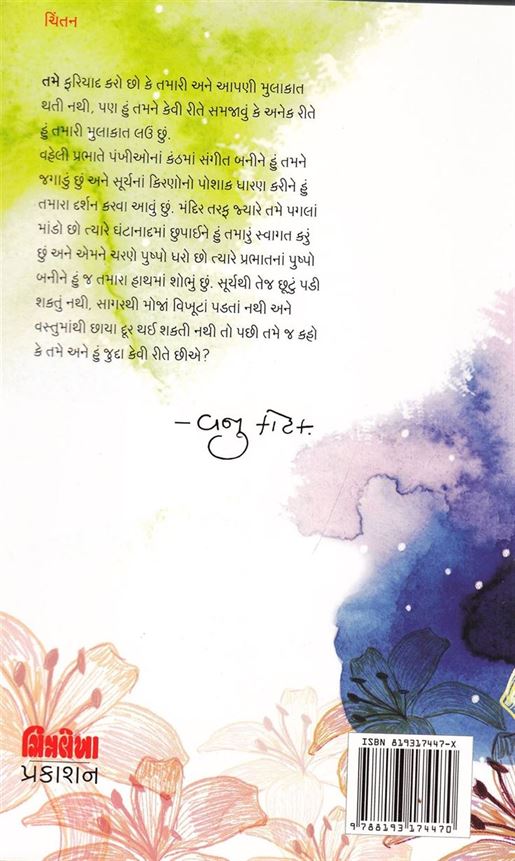 ચિંતન
તમે ફરિયાદ કરો છો કે તમારી અને આપણી મુલાકાત
થતી નથી, પણ હું તમને કેવી રીતે સમજાવું કે અનેક રીતે
હું તમારી મુલાકાત લઉં છું.
વહેલી પ્રભાતે પંખીઓનાં કંઠમાં સંગીત બનીને હું તમને
જગાડું છું અને સૂર્યનાં કિરણોનો પોશાક ધારણ કરીને હું
તમારા દર્શન કરવા આવું છું. મંદિર તરફ જ્યારે તમે પગલાં
માંડો છો ત્યારે ઘંટાનાદમાં છુપાઈને હું તમારું સ્વાગત કરું
છું અને એમને ચરણે પુષ્પો ધરો છો ત્યારે પ્રભાતનાં પુષ્પો
બનીને હું જ તમારા હાથમાં શોભું છું. સૂર્યથી તેજ છૂટું પડી
શકતું નથી, સાગરથી મોજાં વિખૂટાં પડતાં નથી અને
વસ્તુમાંથી છાયા દૂર થઈ શકતી નથી તો પછી તમે જ કહો
કે તમે અને હું જુદા કેવી રીતે છીએ?
– વજુ કોટક
ચિત્રલેખા
પ્રકાશન
ISBN 819317447-X
9 788193 174470